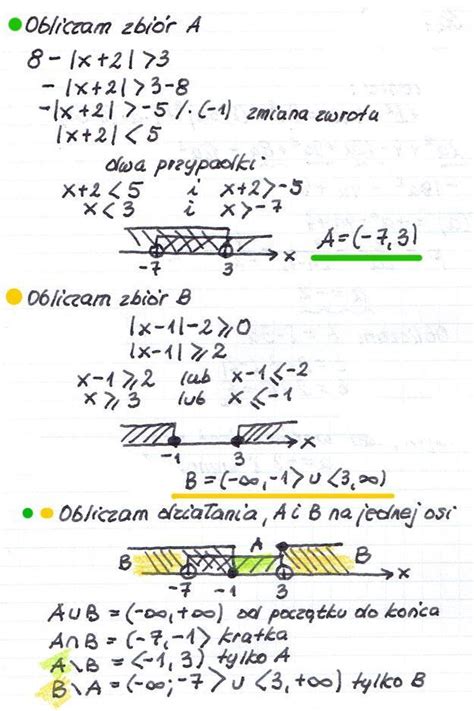 Obliczam zbiór A
8 - |x+2| > 3
- |x+2| > 3-8
-|x+2| > -5 /·(-1) zmiana zwrotu
|x+2| < 5
dwa przypadki:
x+2 < 5 i x+2 > -5
x < 3 i x > -7
-7 3 x A = (-7, 3)
Obliczam zbiór B
|x-1| - 2 ⩾ 0
|x-1| ⩾ 2
x-1 ⩾ 2 lub x-1 ⩽ -2
x ⩾ 3 lub x ⩽ -1
-1 3 x
B = (-∞, -1> ∪ <3, ∞)
Obliczam działania, A i B na jednej osi
B A B
-7 -1 3 x
A∪B = (-∞, +∞) od początku do końca
A∩B = (-7, -1> kratka
A\B = <-1, 3) tylko A
B\A = (-∞; -7> ∪ <3, +∞) tylko B